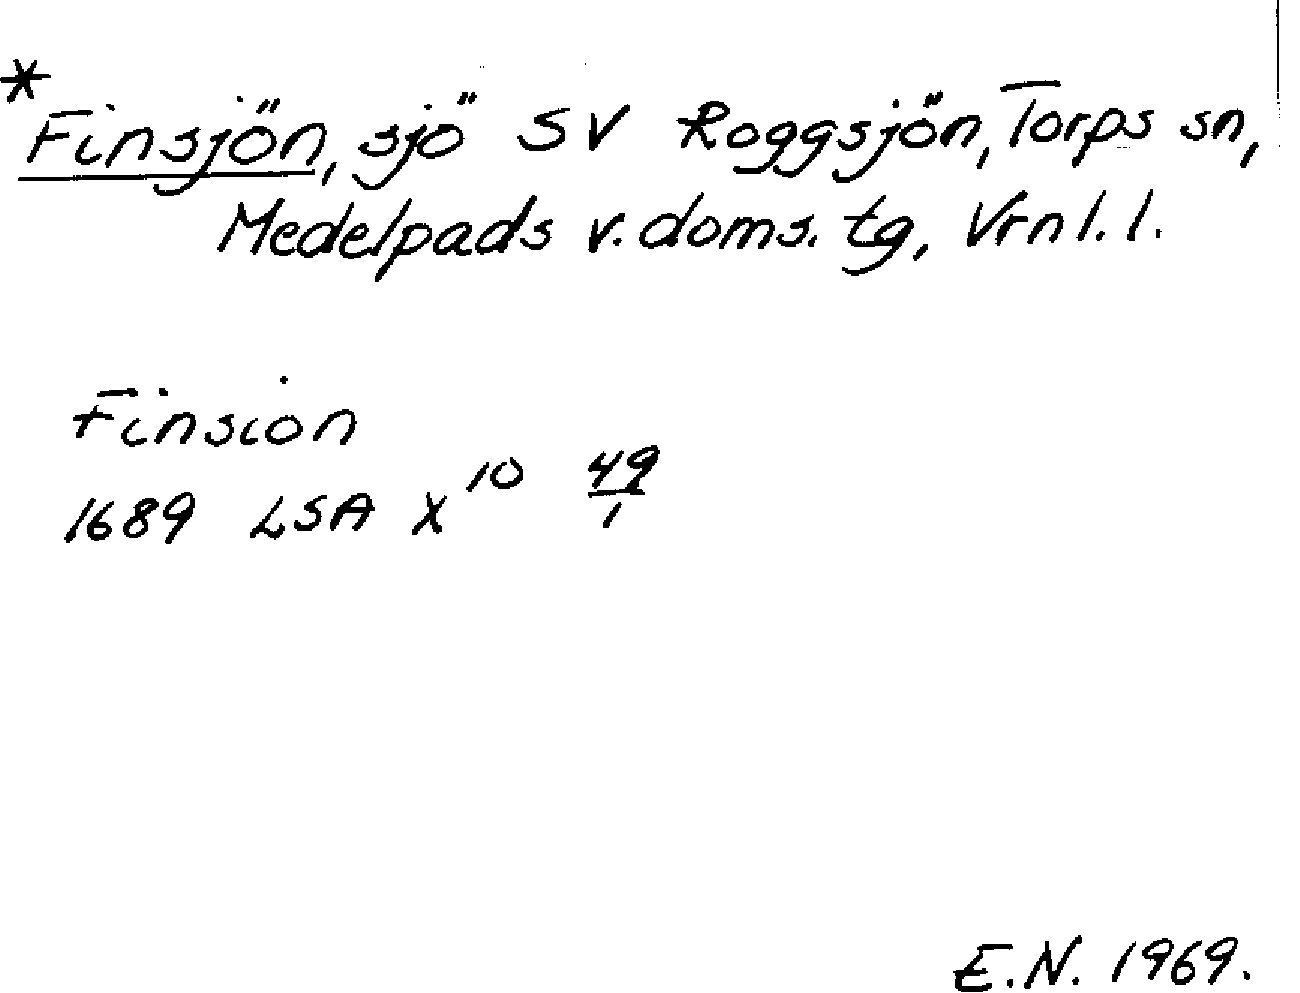 * Finsjön, sjö SV Roggsjön, Torps sn,
Medelpads v. doms. tg, Vrnl. l.
Finsion
1689 LSA X¹⁰ 49/1
E.N. 1969.